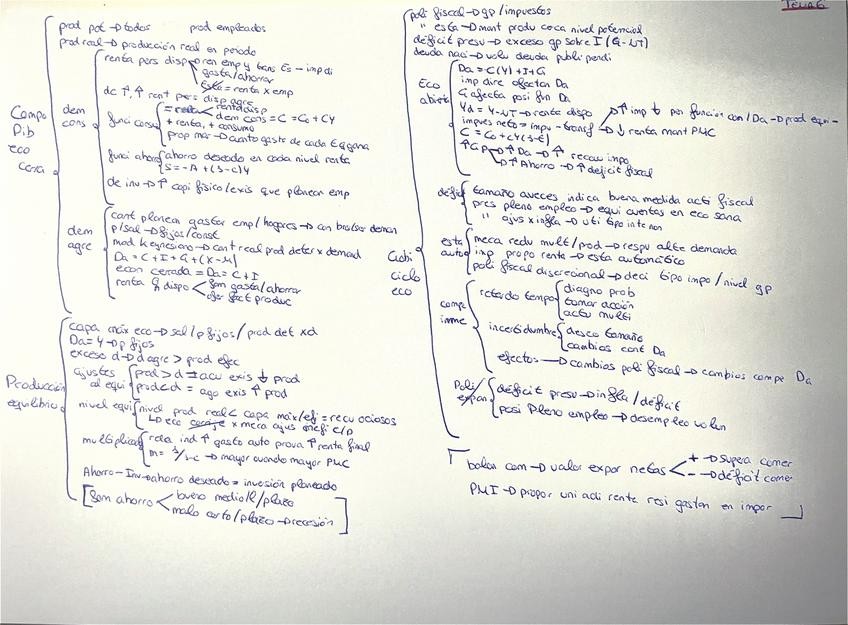 TEMA 6
prod pot → todos prod empleados
prod real → producción real en periodo
Compo
Pib
eco
dem
cons
renta pers disp
ren emp y trans Es - impdi
gasta/ahorrar
= renta x emp
de ↑, ↑ rent pers disp agre
renta disp
dem cons = C = C0 + CY
+ renta, + consumo
prop mar → cuanto gasta de cada € q gana
funci ahorro
ahorro deseado en cada nivel renta
S = -A + (1-c)Y
de inv → ↑ capi fisico/exis que planean emp
dem
agre
cant planean gastar emp/hogares → con
p/sal → fijos/const
mod keynesiano → cant real prod deter x demand
Da = C + I + G + (X-M)
econ cerrada = Da = C + I
renta q dispo
fam gasta/ahorrar
ofer fact produc
Producción
equilibrio
capa máx eco → sal/p fijos/prod det xd
Da = Y → p fijos
exceso d → d agre > prod efec
ajustes
al equi
prod > d = acu exis ↓ prod
prod < d = ago exis ↑ prod
nivel equi
nivel prod real < capa máx/efi = recu ociosos
↳ eco x meca ajus inefi c/p
multiplicad
rela ind ↑ gasto auto prova ↑ renta final
m = 1/1-c → mayor cuando mayor PMC
Ahorro - Inv → ahorro deseado = inversión planeado
fam ahorro
bueno medio/l/plazo
malo corto/plazo → recesión
poli fiscal → gp/impuestos
" esta → mant produ cerca nivel potencial
déficit presu → exceso gp sobre I (G-tT)
deuda naci → volu deuda publi pendi
Eco
abierta
Da = C(Y) + I + G
imp dire afectan Da
G afecta posi fun Da
Yd = Y - tT → renta dispo
↑ imp ↓ por funcion con/Da → prod equi-
impues neto = impu - transf
↓ renta mant PMC
↑ Gp → ↑ Da → ↑ recau impo
↑ Ahorro → ↑ deficit fiscal
ciclo
eco
défici
tamaño aveces indica buena medida acti fiscal
pres pleno empleo → equi cuentas en eco sana
" ajus x infla → uti tipo inte non
esta
auto
meca redu mult/prod → respu alte demanda
imp propo renta → esta automático
poli fiscal discrecional → deci tipo impo/nivel gp
retardo tempo
diagno prob
tomar acción
actu multi
incertidumbre
desco tamaño
cambios cant Da
efectos → cambios poli fiscal → cambios compe Da
Poli/
expan
déficit presu → infla/déficit
posi Pleno empleo → desempleo volun
balan com → valor expor netas
+ → supera comer
- → déficit comer
PMI → propor uni adi renta resi gastan en impor